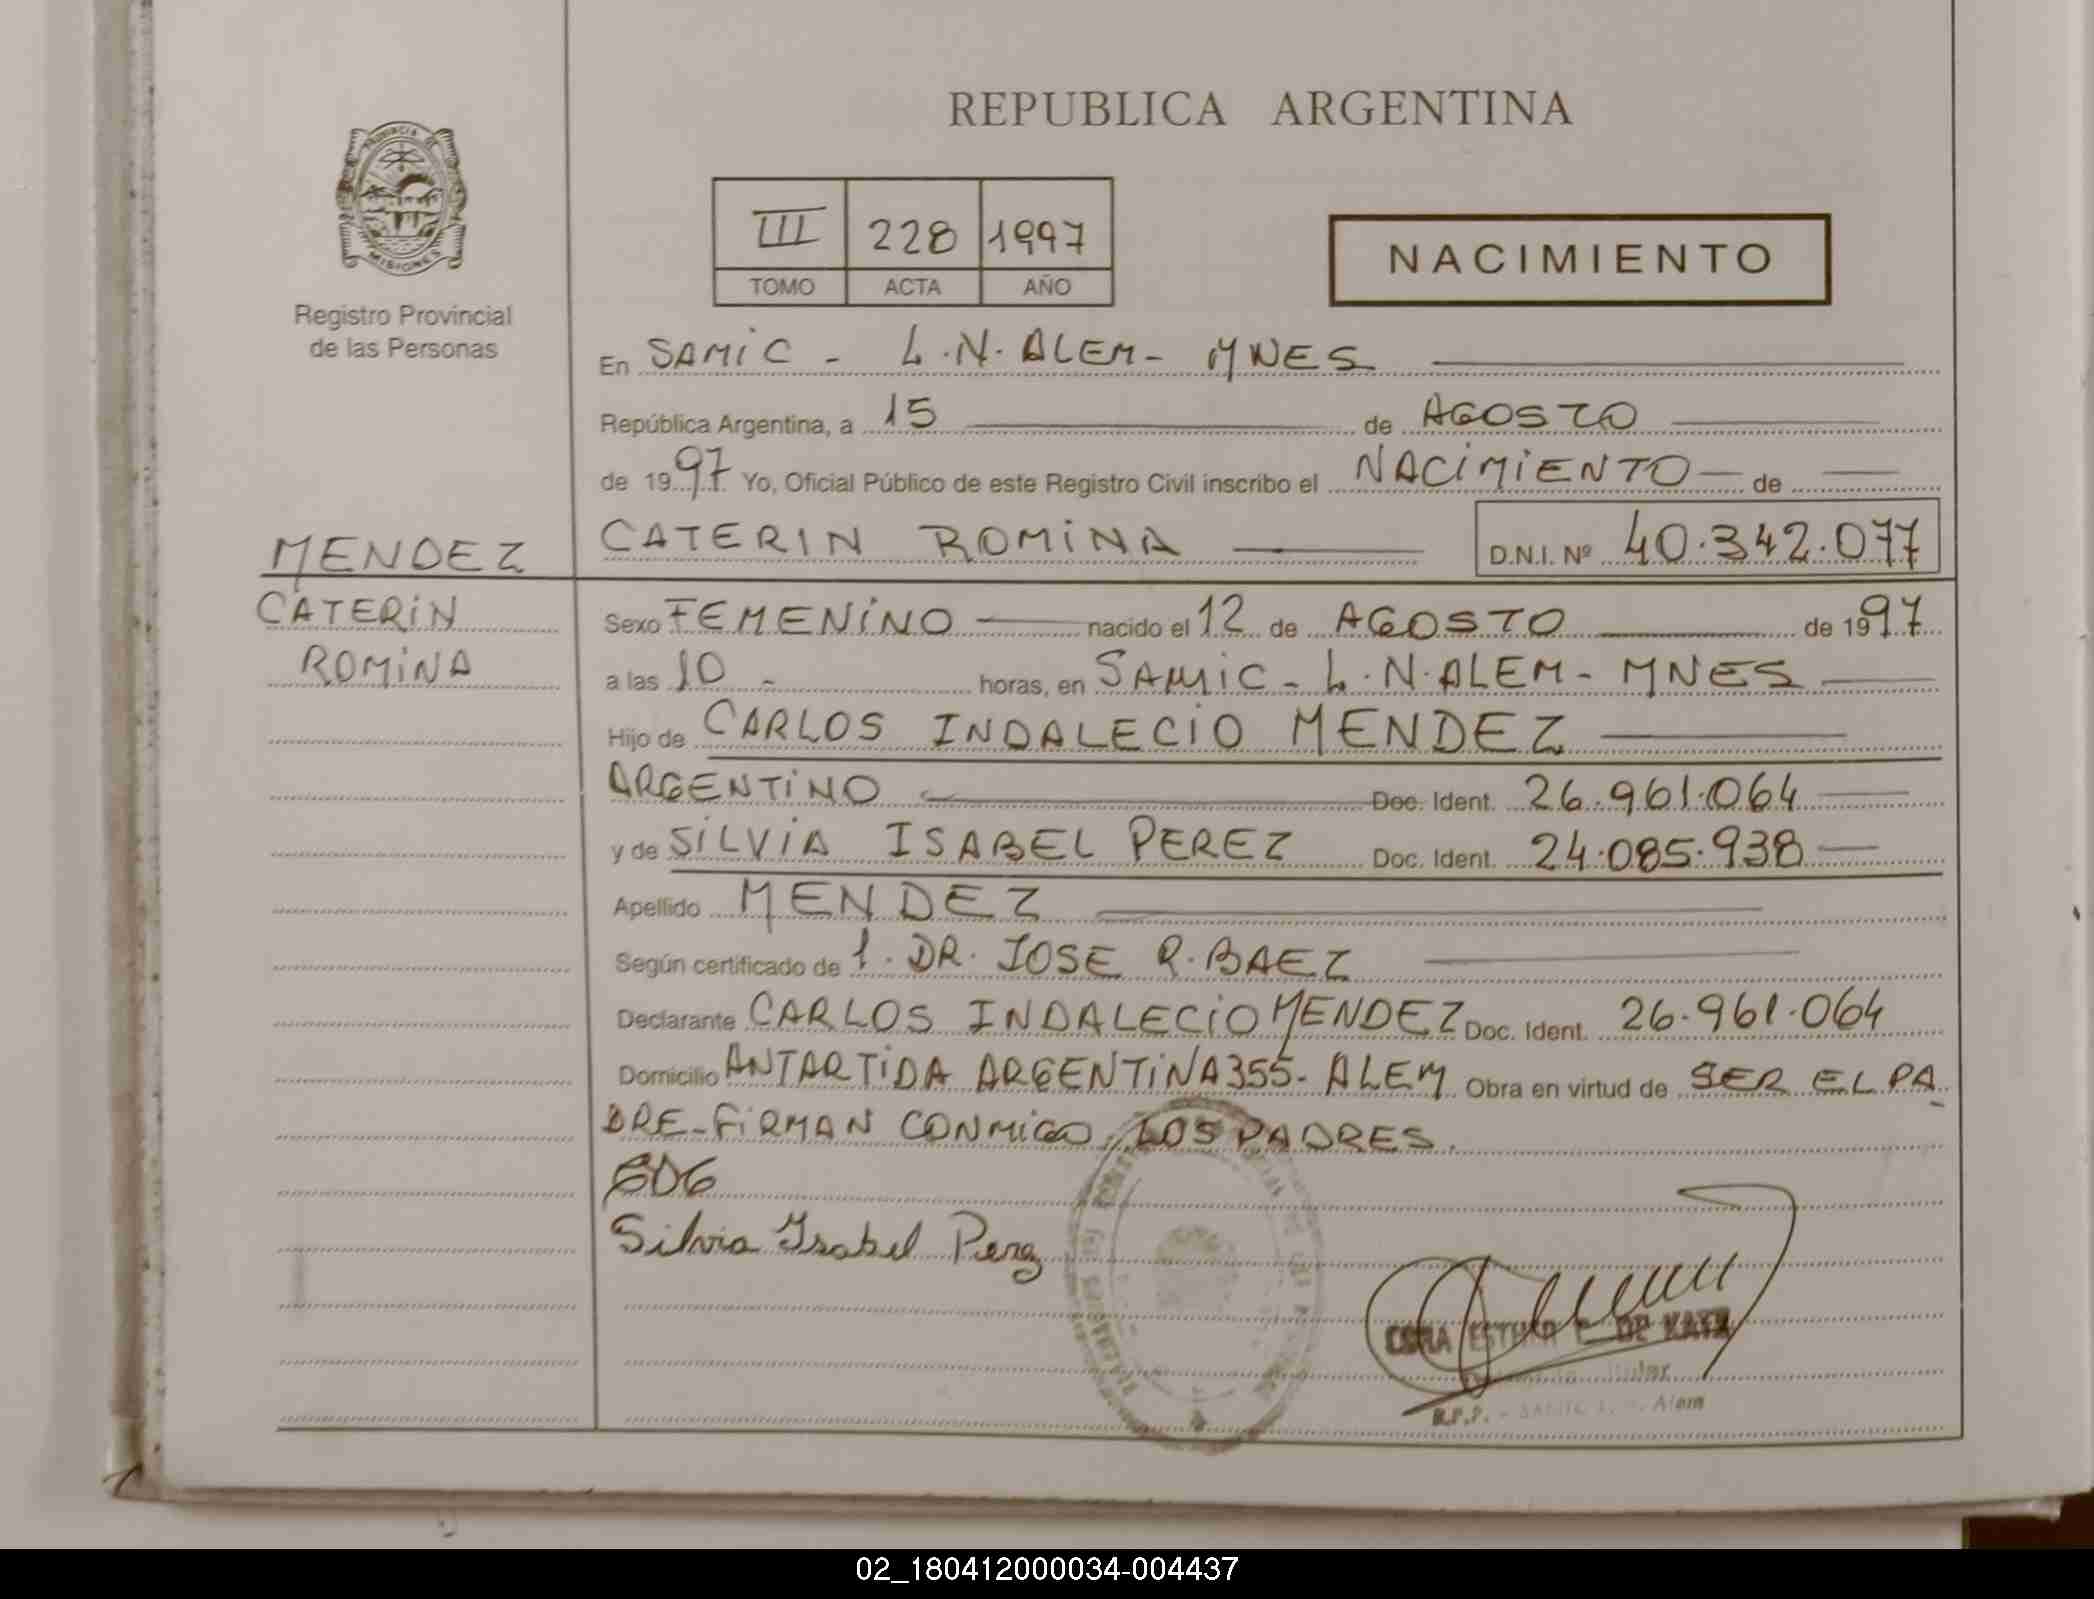 REPUBLICA ARGENTINA
PROVINCIA DE
MISIONES
Registro Provincial
de las Personas
III 228 1997
TOMO ACTA AÑO
NACIMIENTO
En SAMIC - L.N.ALEM- MNES
República Argentina, a 15 de AGOSTO
de 1997 Yo, Oficial Público de este Registro Civil inscribo el NACIMIENTO de
MENDEZ
CATERIN ROMINA D.N.I. Nº 40.342.077
CATERIN
ROMINA
Sexo FEMENINO nacido el 12 de AGOSTO de 1997
a las 10 - horas, en SAMIC - L.N.ALEM- MNES
Hijo de CARLOS INDALECIO MENDEZ
ARGENTINO Doc. Ident. 26.961.064
y de SILVIA ISABEL PEREZ Doc. Ident. 24.085.938
Apellido MENDEZ
Según certificado de 1. DR. JOSE R. BAEZ
Declarante CARLOS INDALECIO MENDEZ Doc. Ident. 26.961.064
Domicilio ANTARTIDA ARGENTINA 355- ALEM Obra en virtud de SER EL PA
DRE-FIRMAN CONMIGO, LOS PADRES.
Silvia Isabel Perez
DE
R.P.P. - SAMIC Alem
02_180412000034-004437